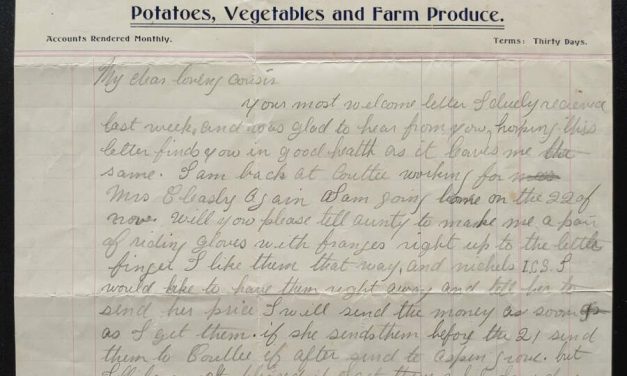 Potatoes, Vegetables and Farm Produce.
Accounts Rendered Monthly. Terms: Thirty Days.
My dear loving cousin
your most welcome letter I duely recieved
last week, and was glad to hear from you, hoping this
letter finds you in good health as it leaves me the
same. I am back at Coultee working for
Mrs Cleasby again I am going home on the 22 of
nov. will you please tell aunty to make me a pair
of riding gloves with franges right up to the little
finger I like them that way, and nichels I.G.S. I
would like to have them right away and tell her to
send her price I will send the money as soon
as I get them. if she sends them before the 21 send
them to Coultee if after send to aspin grove. but